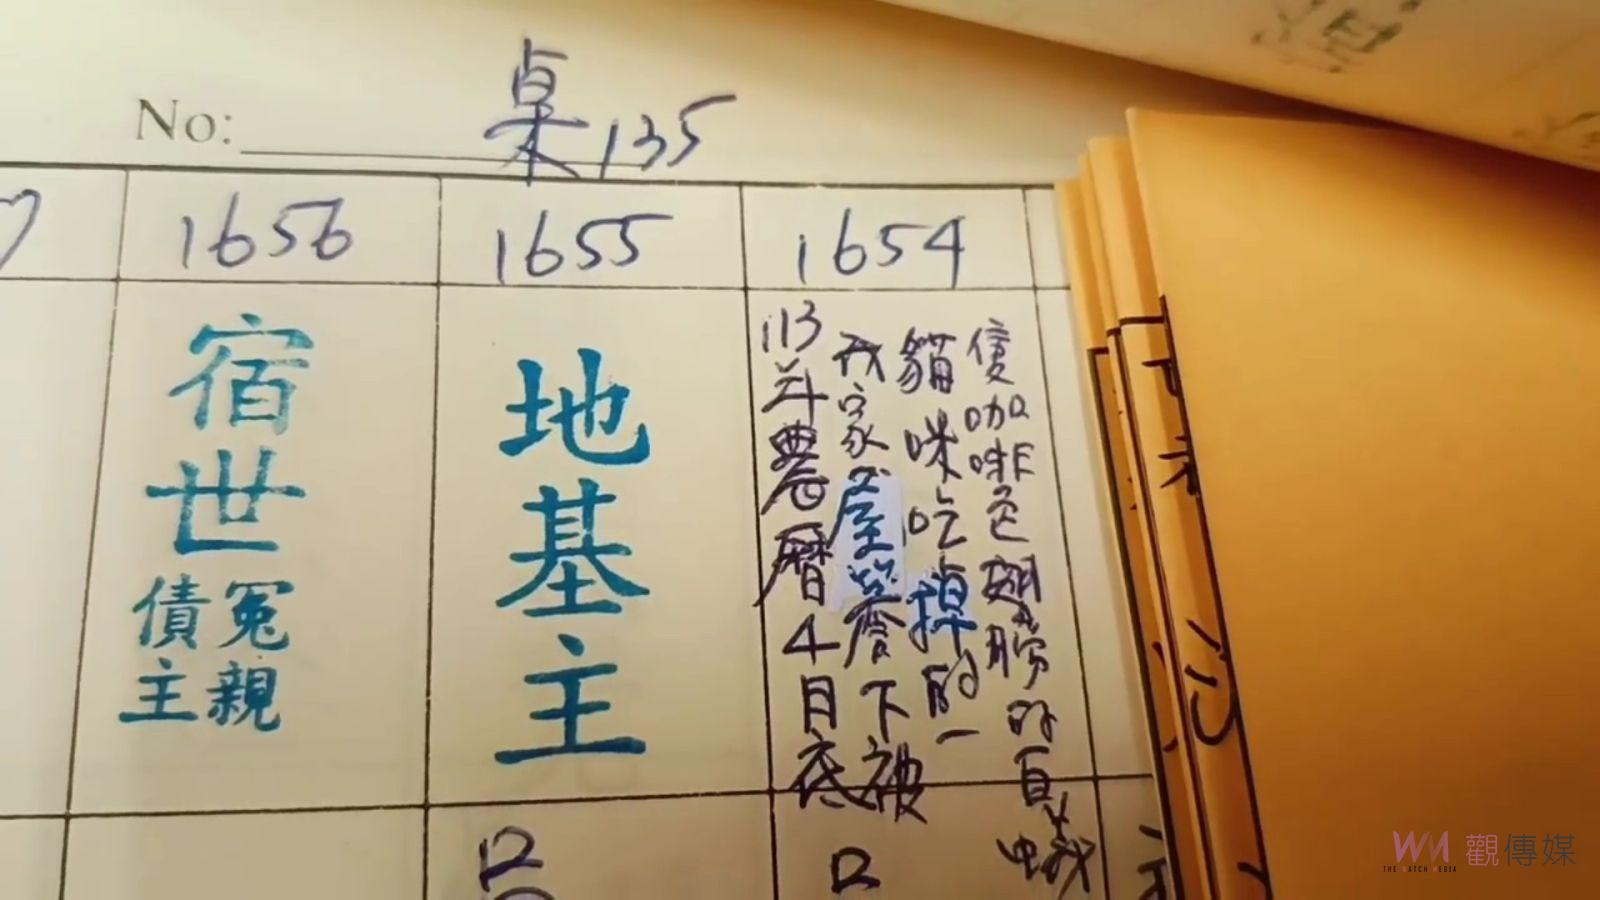 No: 桌135
1654
113年農曆4月底
我家屋簷下被
貓咪吃掉的一
隻咖啡色翅膀的白蟻
1655
地基主
1656
宿世
冤親
債主
觀傳媒
THE WATCH MEDIA